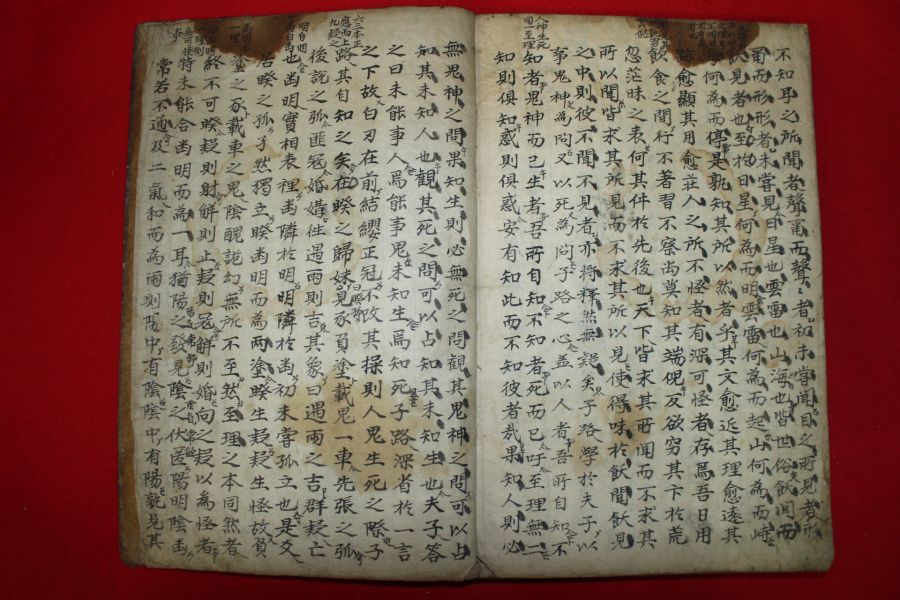 不知耳之所聞者聲甫而聲聲者初未嘗聞目之所見者形
甫而形形者未嘗見日星也雲雷也山海也皆世俗飫聞而
飫見者也至於日星何為而明雲雷何為而起山何為而峙
何為而停是孰知其所以然者乎其文愈近其理愈遠其
愈顯其用愈莊人之所不怪者有深可怪者存焉吾日用
飲食之間行不著習不察尚莫知其端倪反欲窮其卞於荒
忽茫昧之表何其件於先後也天下皆求其所聞而不求其
所以聞皆求其所見而不求其所以見使得味於飫聞飫見
之中則彼不聞不見者亦將釋然無疑矣子路學於夫子以
事鬼神為問又以死為問子路之心盖以人者吾所自知不
知者鬼神而已生者吾所自知不知者死而已吁至理無二
知則俱知惑則俱惑安有知此而不知彼者哉果知人則必
人神生死
同至理
無鬼神之問果知生則必無死之問觀其鬼神之問可以占
知其未知人也觀其死之問可以占知其未知生也夫子答
之曰未能事人焉能事鬼未知生焉知死子路深省於一言
之下故白刃在前結纓正冠不改其操則人鬼生死之際子
路其自知之矣在睽之歸妹曰睽孤見豕負塗載鬼一車先張之弧
後說之弧匪寇婚媾往遇雨則吉其象曰遇雨之吉群疑亡
也幽明實相表裡幽隣於明明隣於幽初未嘗孤立也是爻
居睽之孤孑然獨立睽幽明而為兩塗睽生疑疑生怪故負
塗之豕載車之鬼陰醜詭幻無所不至然至理之本同然者
終不可睽疑則射解則止疑則寇解則婚向之疑以為怪者
特未能合幽明而為一耳猶陽之發見陰之伏匿陽明陰幽
常若不通及二氣和而為雨則陽中有陰陰中有陽孰見其